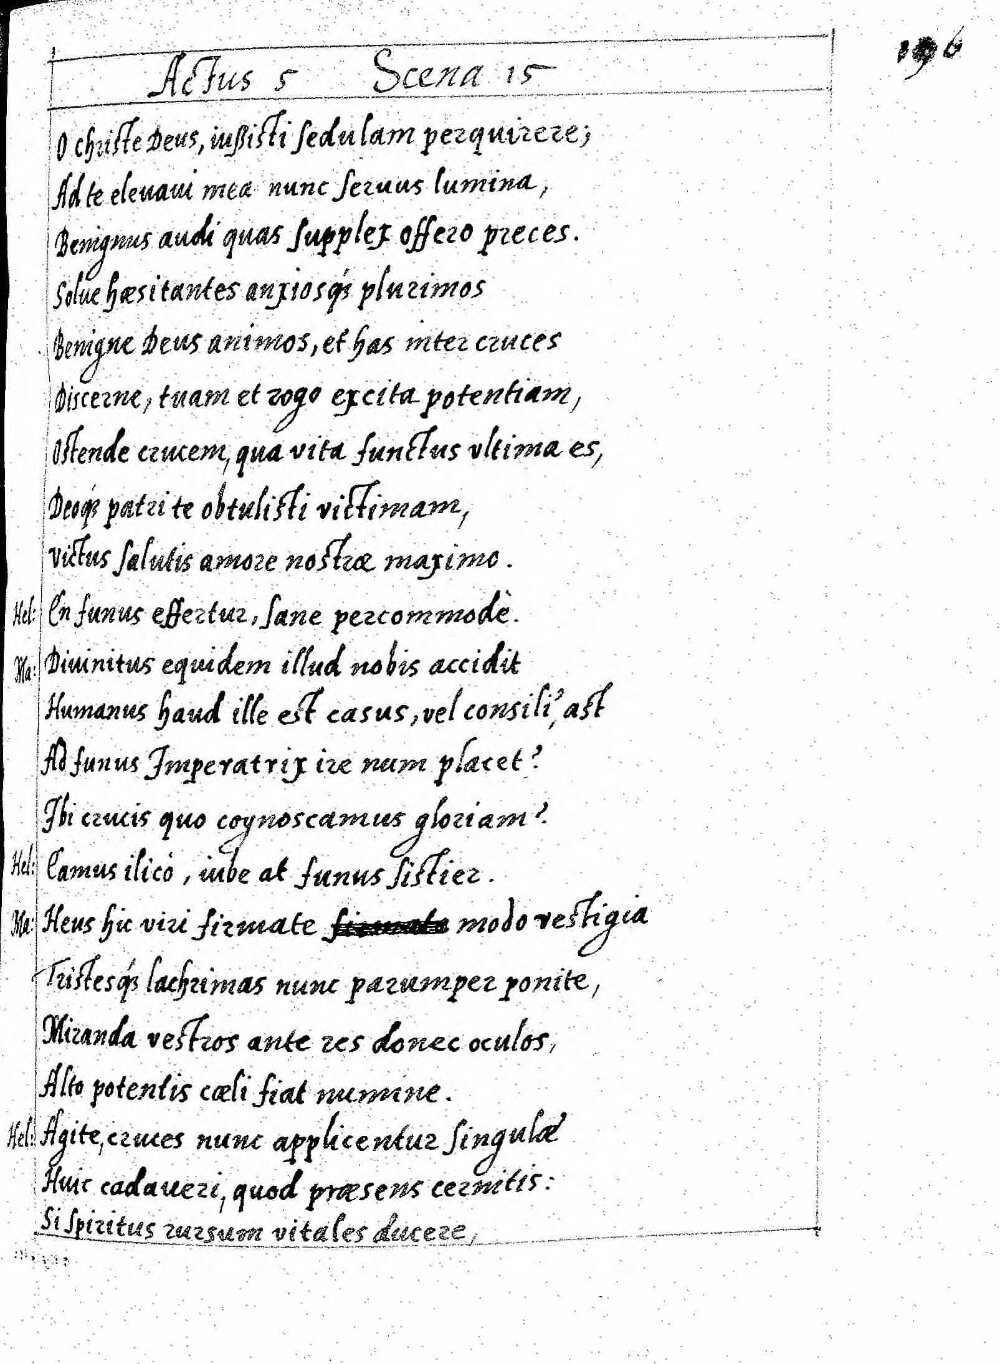 196
Actus 5 Scena 15
O christe Deus, iußisti sedulam perquirere;
Ad te eleuaui mea nunc seruus lumina,
Benignus audi quas supplex offero preces.
Solue hæsitantes anxiosq́; plurimos
Benigne Deus animos, et has inter cruces
Discerne, tuam et rogo excita potentiam,
Ostende crucem, qua vita functus vltima es,
Deoq́; patri te obtulisti victimam,
Victus salutis amore nostræ maximo.
Hel: En funus effertur, sane percommodè.
Ma: Diuinitus equidem illud nobis accidit
Humanus haud ille est casus, vel consili', ast
Ad funus Imperatrix ire num placet?
Ibi crucis quo cognoscamus gloriam?
Hel: Eamus ilicò, iube at funus sistier.
Ma: Heus hic viri firmate firmate modo vestigia
Tristesq́; lachrimas nunc parumper ponite,
Miranda vestros ante res donec oculos,
Alto potentis cæli fiat numine.
Hel: Agite, cruces nunc applicentur singulæ
Huic cadaueri, quod præsens cernitis:
Si spiritus rursum vitales ducere,